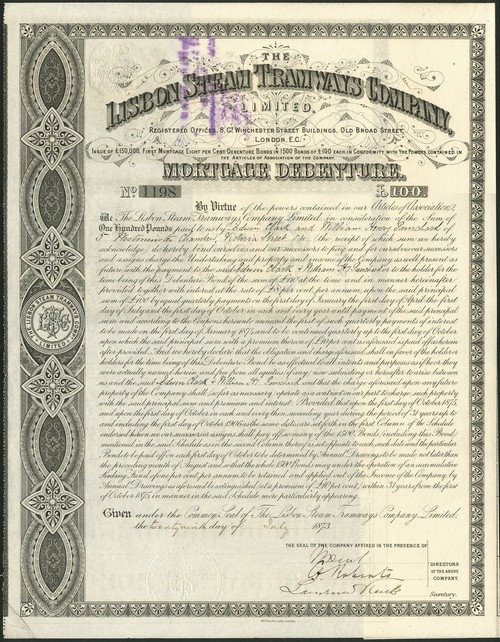 THE
LISBON STEAM TRAMWAYS COMPANY,
LIMITED.
REGISTERED OFFICES, 8, GT WINCHESTER STREET BUILDINGS, OLD BROAD STREET,
LONDON, E.C.
ISSUE OF £150,000. FIRST MORTGAGE EIGHT PER CENT DEBENTURE BONDS IN 1500 BONDS OF £100 EACH IN CONFORMITY WITH THE POWERS CONTAINED IN
THE ARTICLES OF ASSOCIATION OF THE COMPANY.
MORTGAGE DEBENTURE.
No 1198 £100.
By Virtue of the powers contained in our Articles of Association,
We The Lisbon Steam Tramways Company Limited, in consideration of the Sum of
One Hundred Pounds paid to us by Edwin Clark and William Henry Punchard of
5 Westminster Chambers, Victoria Street the receipt of which sum we hereby
acknowledge do hereby bind ourselves and our successors to pay and for ourselves our successors
and assigns charge the Undertaking and property and income of the Company as well present as
future with the payment to the said Edwin Clark & William H. Punchard or to the holder for the
time being of this Debenture Bond of the sum of £100 at the time and in manner hereinafter
provided together with interest at the rate of £8 per cent per annum upon the said principal
sum of £100 by equal quarterly payments on the first day of January the first day of April the first
day of July and the first day of October in each and every year until payment of the said principal
sum and according to the Coupons hereunto annexed the first of such quarterly payments of interest
to be made on the first day of January 1874 and to be continued quarterly up to the first day of October
upon which the said principal sum with a premium thereon of £10 per cent as aforesaid is paid off as herein
after provided. And we hereby declare that the obligation and charge aforesaid shall in favor of the holder or
holders for the time being of this Debenture Bond be as effectual to all intents and purposes as if he or they
were actually named herein and free from all equities if any now subsisting or hereafter to arise between
us and the said Edwin Clark & William H. Punchard and that the charge aforesaid upon any future
property of the Company shall so far as necessary operate as a contract on our part to charge such property
with the said principal sum and premium and interest. Provided that upon the first day of October 1875,
and upon the first day of October in each and every then ensuing year during the period of 31 years up to
and including the first day of October 1906 as the same dates are set forth in the first Column of the Schedule
endorsed hereon, we our successors and assigns shall pay off so many of the 1500 Bonds (including this Bond)
mentioned in the said Schedule as in the second Column thereof is set opposite to each such date and the particular
Bonds to be paid off on each first day of October to be determined by Annual Drawings to be made not later than
the preceding month of August and so that the whole 1500 Bonds may under the operation of an accumulative
Sinking Fund of one per cent per annum to be raised and applied out of the Income of the Company by
Annual Drawings as aforesaid be extinguished at a premium of £10 per cent within 31 years from the first
of October 1875 in manner in the said Schedule more particularly appearing.
Given under the Common Seal of The Lisbon Steam Tramways Company Limited.
the twenty ninth day of July 1873.
THE SEAL OF THE COMPANY AFFIXED IN THE PRESENCE OF
DIRECTORS
OF THE ABOVE
COMPANY.
Secretary.
LISBON STEAM TRAMWAYS COMPANY
LIMITED